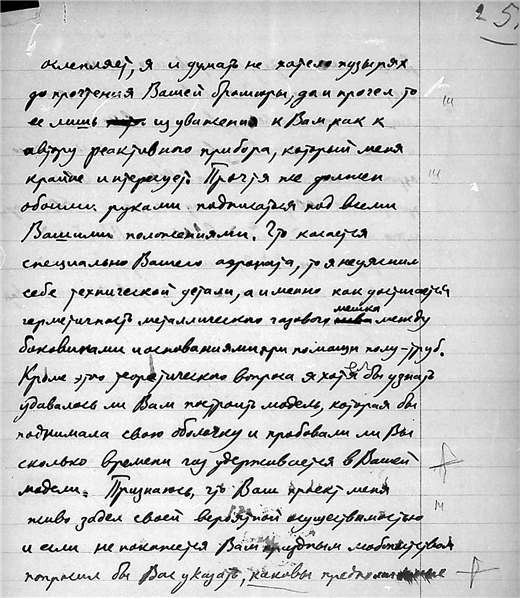 25
ослепляет, я и думать не хотел о пузырях
до прочтения Вашей брошюры, да и прочел то
ее лишь из уважения к Вам, как к
автору реактивного прибора, который меня
крайне интересует. Прочтя же должен
обоими руками подписаться под всеми
Вашими положениями. Что касается
специально Вашего аэроната, то я не уяснил
себе технической детали, а именно как достигается
герметичность металлического газового мешка между
боковинами и основаниями при помощи полу-труб.
Кроме этого теоретического вопроса я хотел бы узнать
удавалось ли Вам построить модель, которая бы
поднимала свою оболочку и пробовали ли Вы
сколько времени газ удерживается в Вашей
модели. Признаюсь, что Ваш проект меня
живо задел своей вероятной осуществимостью
и если не покажется Вам трудным любопытством
попросил бы Вас указать, каковы